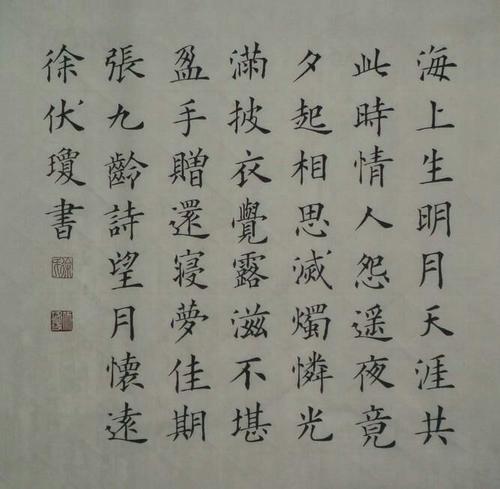 海上生明月天涯共
此時情人怨遥夜竟
夕起相思滅燭憐光
滿披衣覺露滋不堪
盈手贈還寢夢佳期
張九齡詩望月懷遠
徐伏瓊書